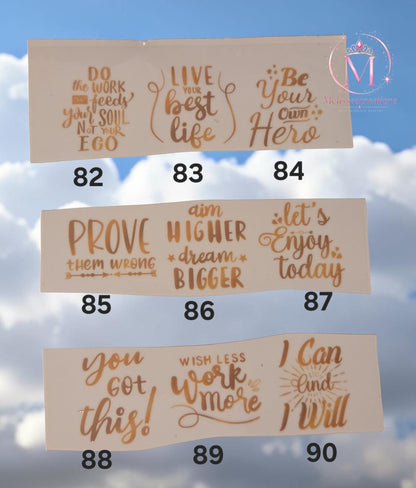 M
DO
the WORK
that feeds
your SOUL
NOT YOUR
EGO
LIVE
YOUR
best
life
Be
Your
Own
Hero
82
83
84
PROVE
them WRONG
aim
HIGHER
dream
BIGGER
let's
Enjoy
today
85
86
87
you
GOT
this!
WISH LESS
work
more
I Can
and
I Will
88
89
90